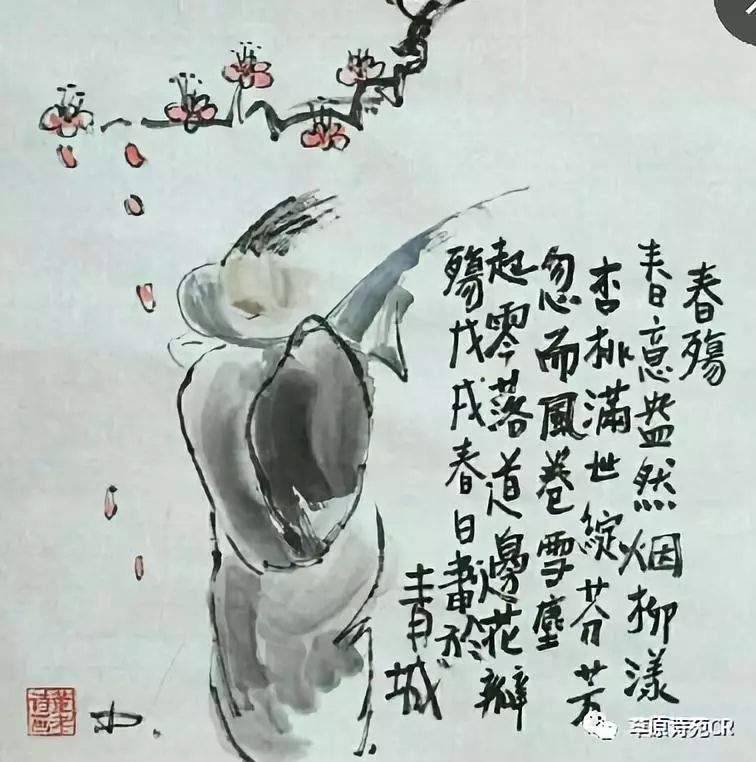 春殤
春意盎然烟柳漾
杏桃滿世綻芬芳
忽而風卷雪塵
起零落道邊花瓣
殤戊戌春日畫於
青城
草原诗苑CR